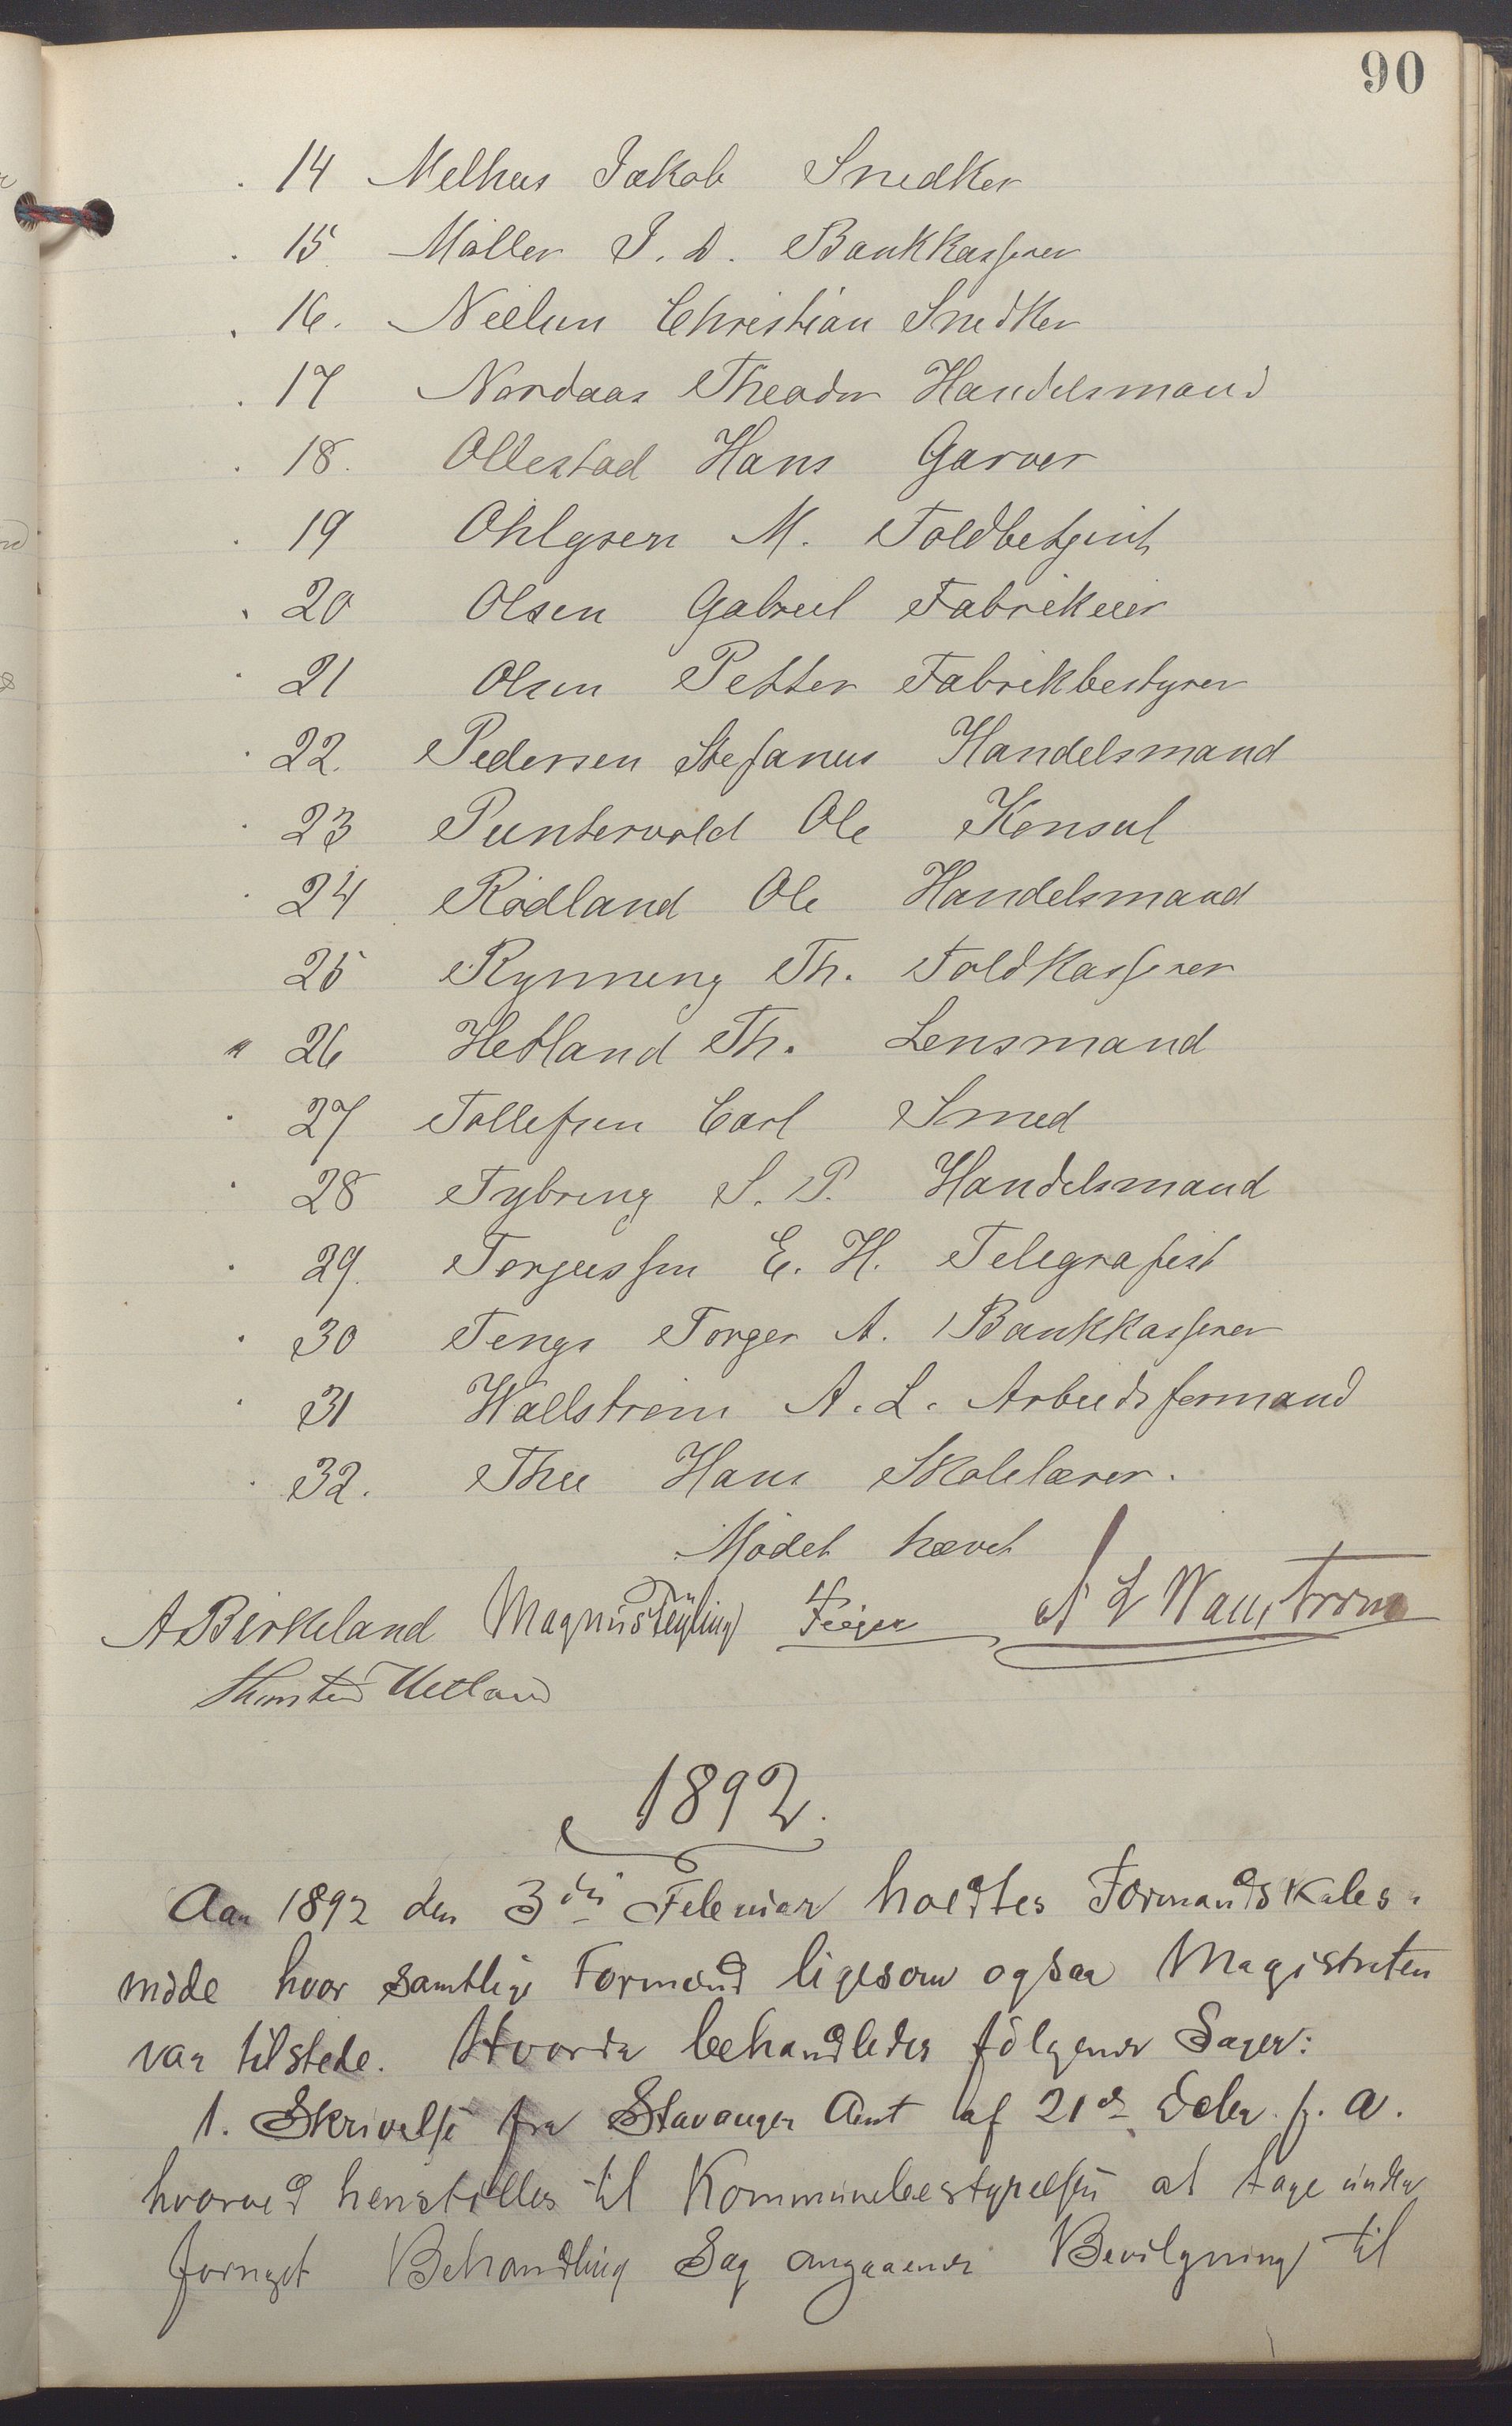 90
14 Melhus Jakob Snedker
15 Møller J. D. Bankkasserer
16. Neelun Christian Snedker
17 Nordaas Theodor Handelsmand
18. Ollestad Hans Garver
19 Ohlgsen M. Toldbetjent
20 Olsen Gabriel Fabrikeier
21 Olsen Petter Fabrikbestyrer
22. Pedersen Stefanus Handelsmand
23 Puntervold Ole Konsul
24 Rödland Ole Handelsmand
25 Rynning Th. Toldkasserer
26 Hetland Th. Lensmand
27 Tollefsen Carl Smed
28 Tybring S. P. Handelsmand
29. Torjussen E. H. Telegrafist
30 Tengs Torger A. Bankkasserer
31 Wallstrøm A. L. Arbeidsformand
32. Thu Hans Skolelærer.
Mødet hævet
A Birkeland Magnus Feyling Feiger A L Wallstrøm
Thorsten Hetland
1892.
Aar 1892 den 3die Februar holdtes Formandskabs-
møde hvor samtlige Formænd ligesom ogsaa Magistraten
var tilstede. Hvorda behandledes følgende Sager:
1. Skrivelse fra Stavanger Amt af 21de Decbr. f. A.
hvorved henstilles til Kommunebestyrelsen at tage under
fornyet Behandling Sag angaaende Bevilgning til